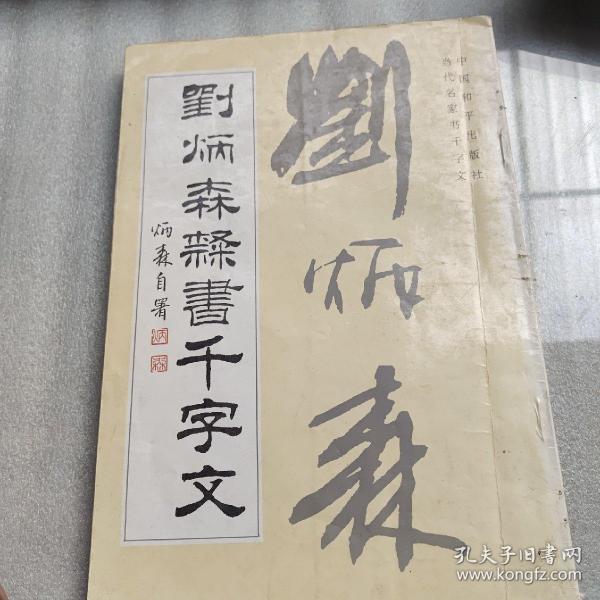 中国和平出版社
当代名家书千字文
劉炳森
劉炳森隸書千字文
炳森自署
炳
森
孔夫子旧书网
www.kongfz.com